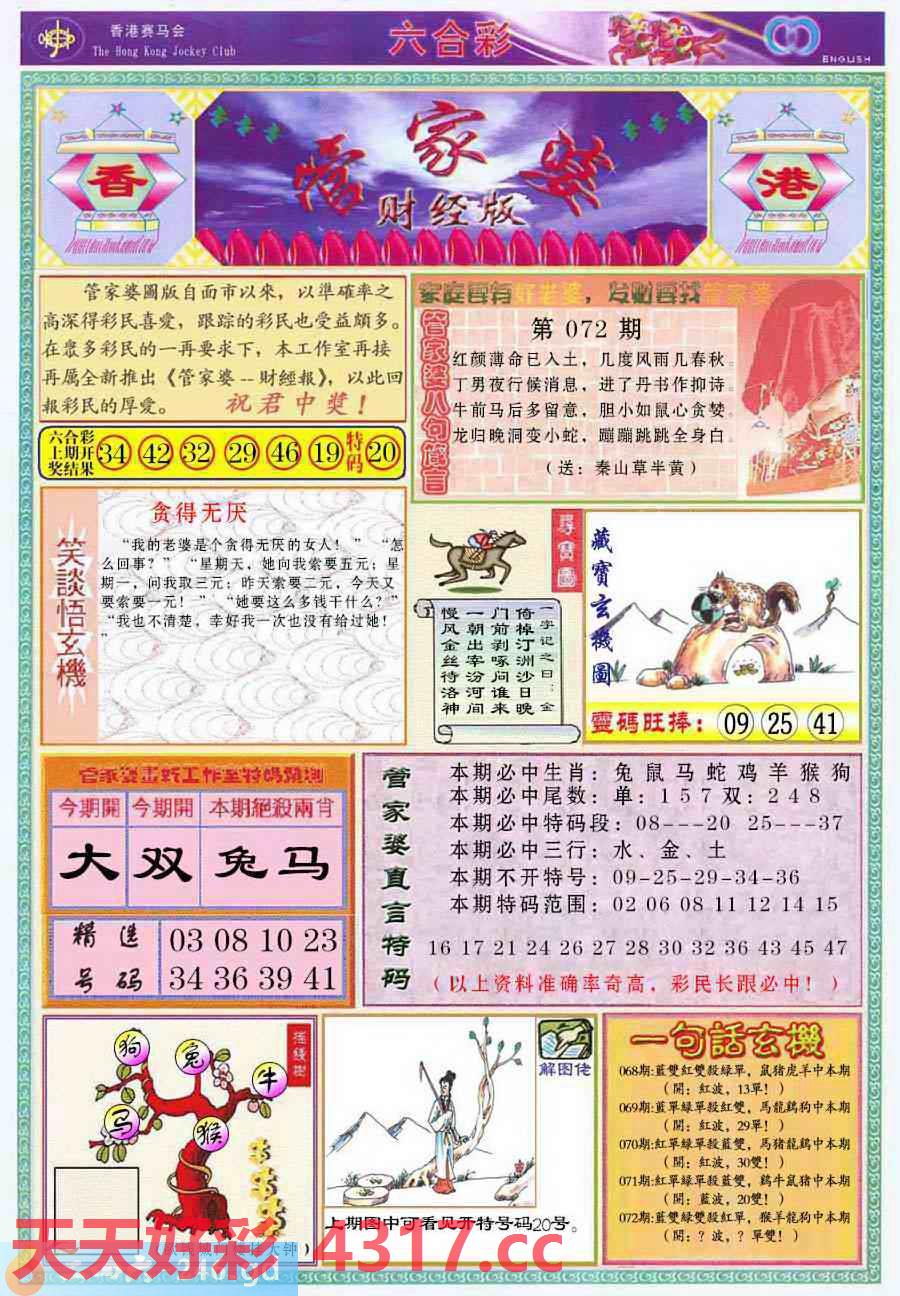 香港赛马会
The Hong Kong Jockey Club
六合彩
ENGLISH
香
管家婆
财经版
港
管家婆圖版自面市以來，以準確率之
高深得彩民喜爱，跟踪的彩民也受益頗多。
在眾多彩民的一再要求下，本工作室再接
再属全新推出《管家婆--財經報》，以此回
報彩民的厚爱。 祝君中獎！
六合彩
上期开
奖结果
34 42 32 29 46 19 特码 20
家庭需有好老婆，发财要找管家婆
管家婆八句箴言
第 072 期
红颜薄命已入土，几度风雨几春秋。
丁男夜行候消息，进了丹书作抑诗。
牛前马后多留意，胆小如鼠心贪婪。
龙归晚洞变小蛇，蹦蹦跳跳全身白。
（送：秦山草半黄）
笑談悟玄機
贪得无厌
“我的老婆是个贪得无厌的女人！” “怎
么回事？” “星期天，她向我索要五元；星
期一，问我取三元；昨天索要二元，今天又
要索要一元！” “她要这么多钱干什么？”
“我也不清楚，幸好我一次也没有给过她！
”
尋寶圖
一字记之曰：金
倚棹汀洲沙日晚
门前剥啄问谁来
一朝出宰汾河间
慢风金丝待洛神
藏寶玄機圖
靈碼旺捧：09 25 41
管家婆畫新工作室特碼預測
今期開 今期開 本期絕殺兩肖
大 双 兔马
精选
号码
03 08 10 23
34 36 39 41
管家婆直言特码
本期必中生肖：兔 鼠 马 蛇 鸡 羊 猴 狗
本期必中尾数：单：1 5 7 双：2 4 8
本期必中特码段：08---20 25---37
本期必中三行：水、金、土
本期不开特号：09-25-29-34-36
本期特码范围：02 06 08 11 12 14 15
16 17 21 24 26 27 28 30 32 36 43 45 47
（以上资料准确率奇高，彩民长跟必中！）
摇錢樹
狗
兔
牛
马
猴
解图佬
上期图中可看见开特号码20号。
一句話玄機
068期:藍雙紅雙殺綠單，鼠猪虎羊中本期
（開：紅波，13單！）
069期:藍單綠單殺紅雙，馬龍鷄狗中本期
（開：紅波，29單！）
070期:紅單綠單殺藍雙，馬猪龍鷄中本期
（開：紅波，30雙！）
071期:紅單綠單殺藍雙，鷄牛鼠猪中本期
（開：藍波，20雙！）
072期:藍雙綠雙殺紅單，猴羊龍狗中本期
（開：？波，？單雙！）
天天好彩 4317.cc